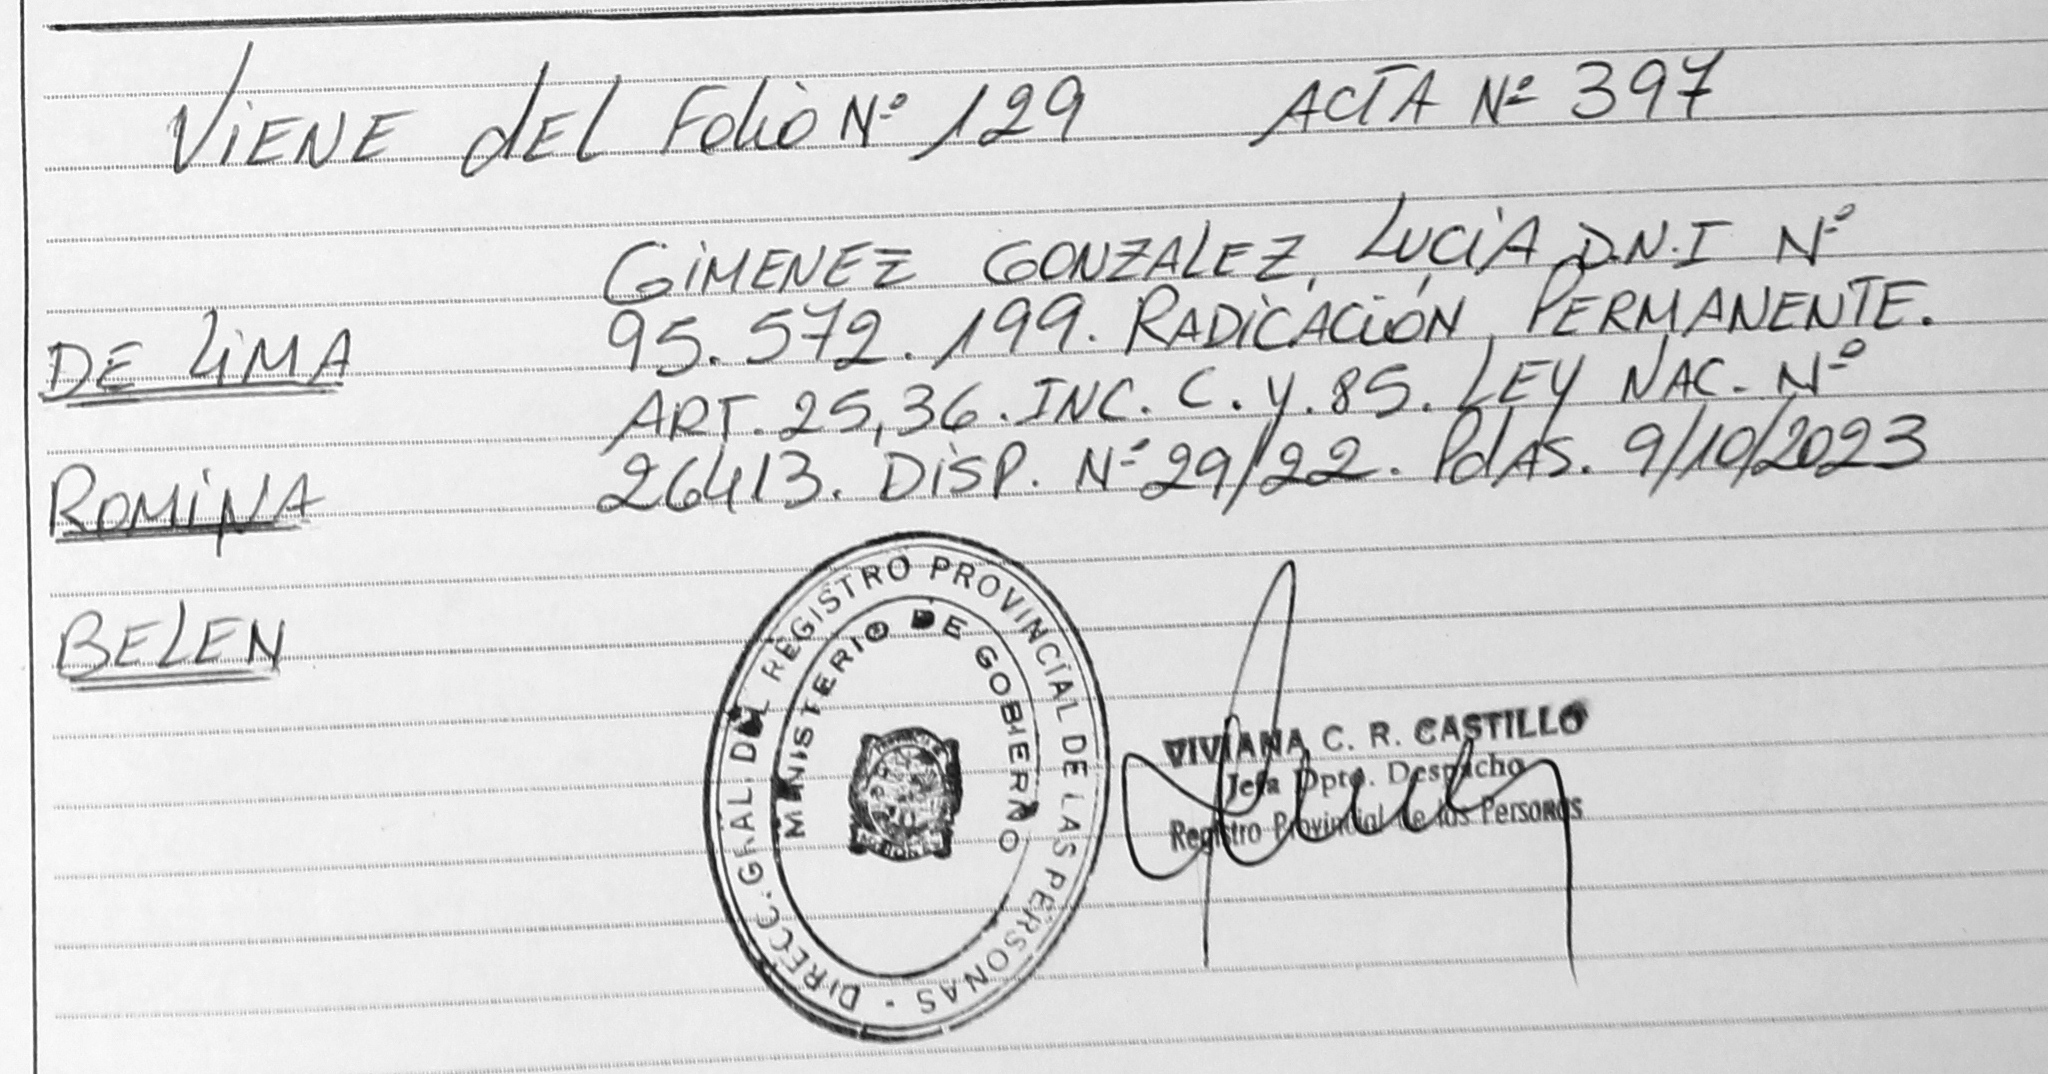 ViENE dEL Folio Nº 129 ACTA Nº 397
GiMENEZ GONZALEZ, LUCiA D.N.I Nº
95.572.199. RADiCACiÓN PERMANENTE.
ART. 25,36. INC. C. Y. 85. LEY NAC. Nº
26413. DiSP. Nº 29/22. PdAS. 9/10/2023
DE LiMA
ROMiNA
BELEN
DIRECC. GRAL. DEL REGISTRO PROVINCIAL DE LAS PERSONAS -
MINISTERIO DE GOBIERNO
VIVIANA C. R. CASTILLO
Jefa Dpto. Despacho
Registro Provincial de las Personas